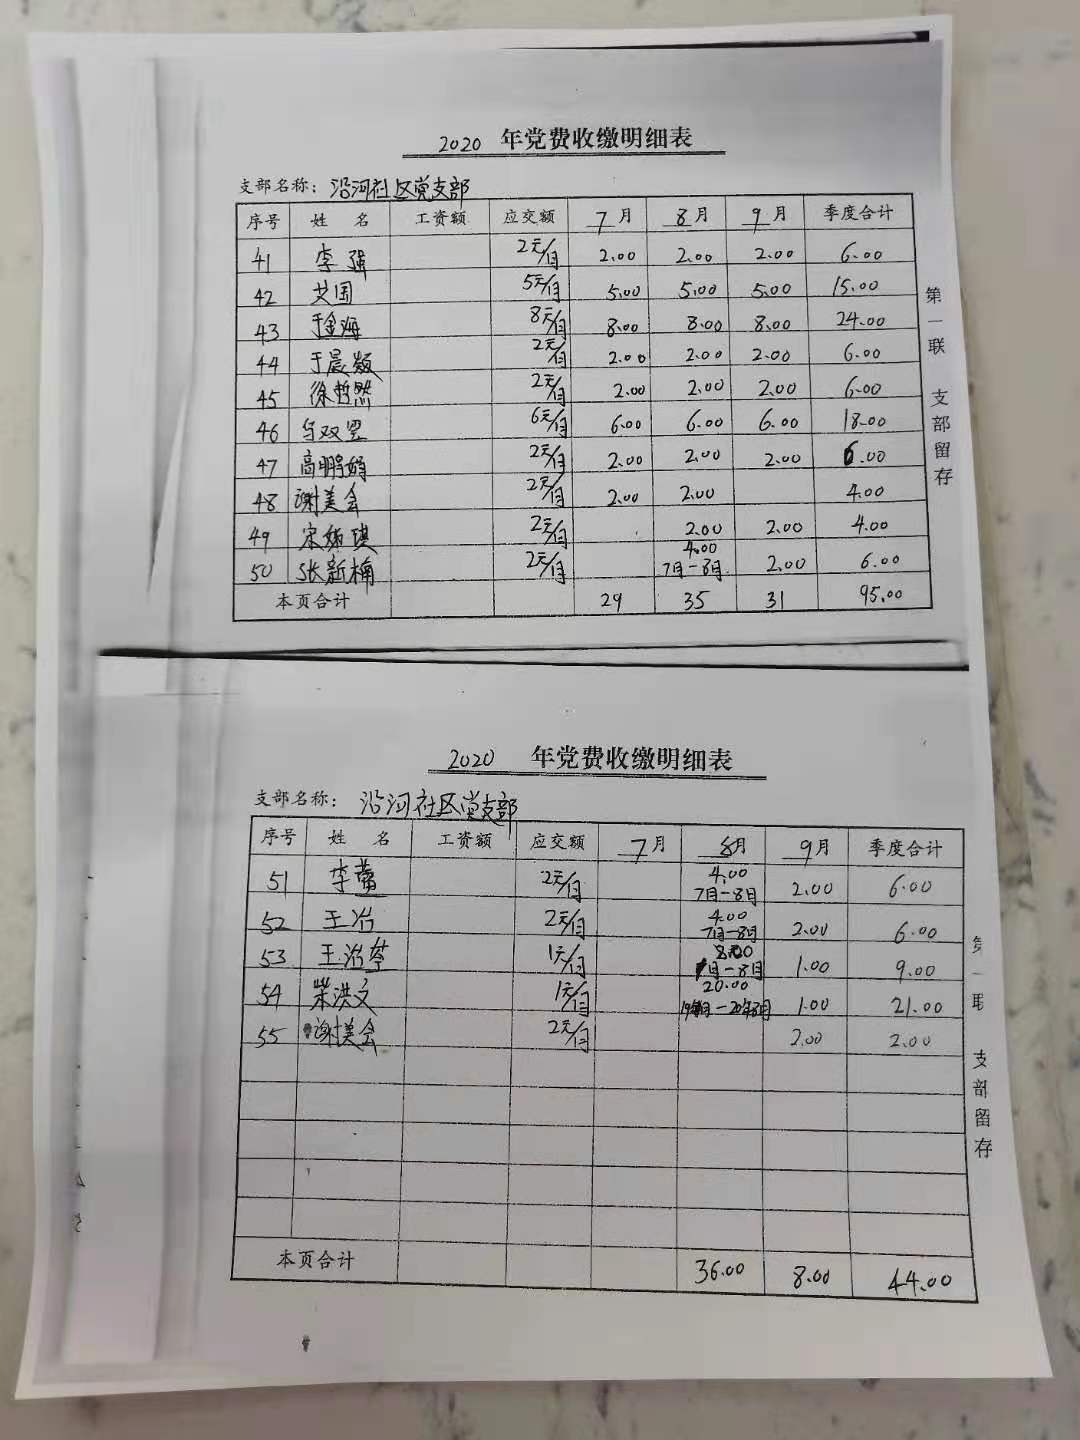 2020 年党费收缴明细表
支部名称：沿河社区党支部
序号 姓 名 工资额 应交额 7月 8月 9月 季度合计
41 李强 2元/月 2.00 2.00 2.00 6.00
42 艾国 5元/月 5.00 5.00 5.00 15.00
43 于金海 8元/月 8.00 8.00 8.00 24.00
44 于晨颖 2元/月 2.00 2.00 2.00 6.00
45 徐哲然 2元/月 2.00 2.00 2.00 6.00
46 双翌 6元/月 6.00 6.00 6.00 18.00
47 高鹏娟 2元/月 2.00 2.00 2.00 6.00
48 谢美会 2元/月 2.00 2.00 4.00
49 宋琪 2元/月 2.00 2.00 4.00
50 张新楠 2元/月 4.00 7月-8月 2.00 6.00
本页合计 29 35 31 95.00
第一联 支部留存
2020 年党费收缴明细表
支部名称：沿河社区党支部
序号 姓 名 工资额 应交额 7月 8月 9月 季度合计
51 李蕾 2元/月 4.00 7月-8月 2.00 6.00
52 王冶 2元/月 4.00 7月-8月 2.00 6.00
53 王治 1元/月 8.00 1月-8月 1.00 9.00
54 柴洪文 1元/月 20.00 1.00 21.00
55 谢美会 2元/月 2.00 2.00
本页合计 36.00 8.00 44.00
第一联 支部留存